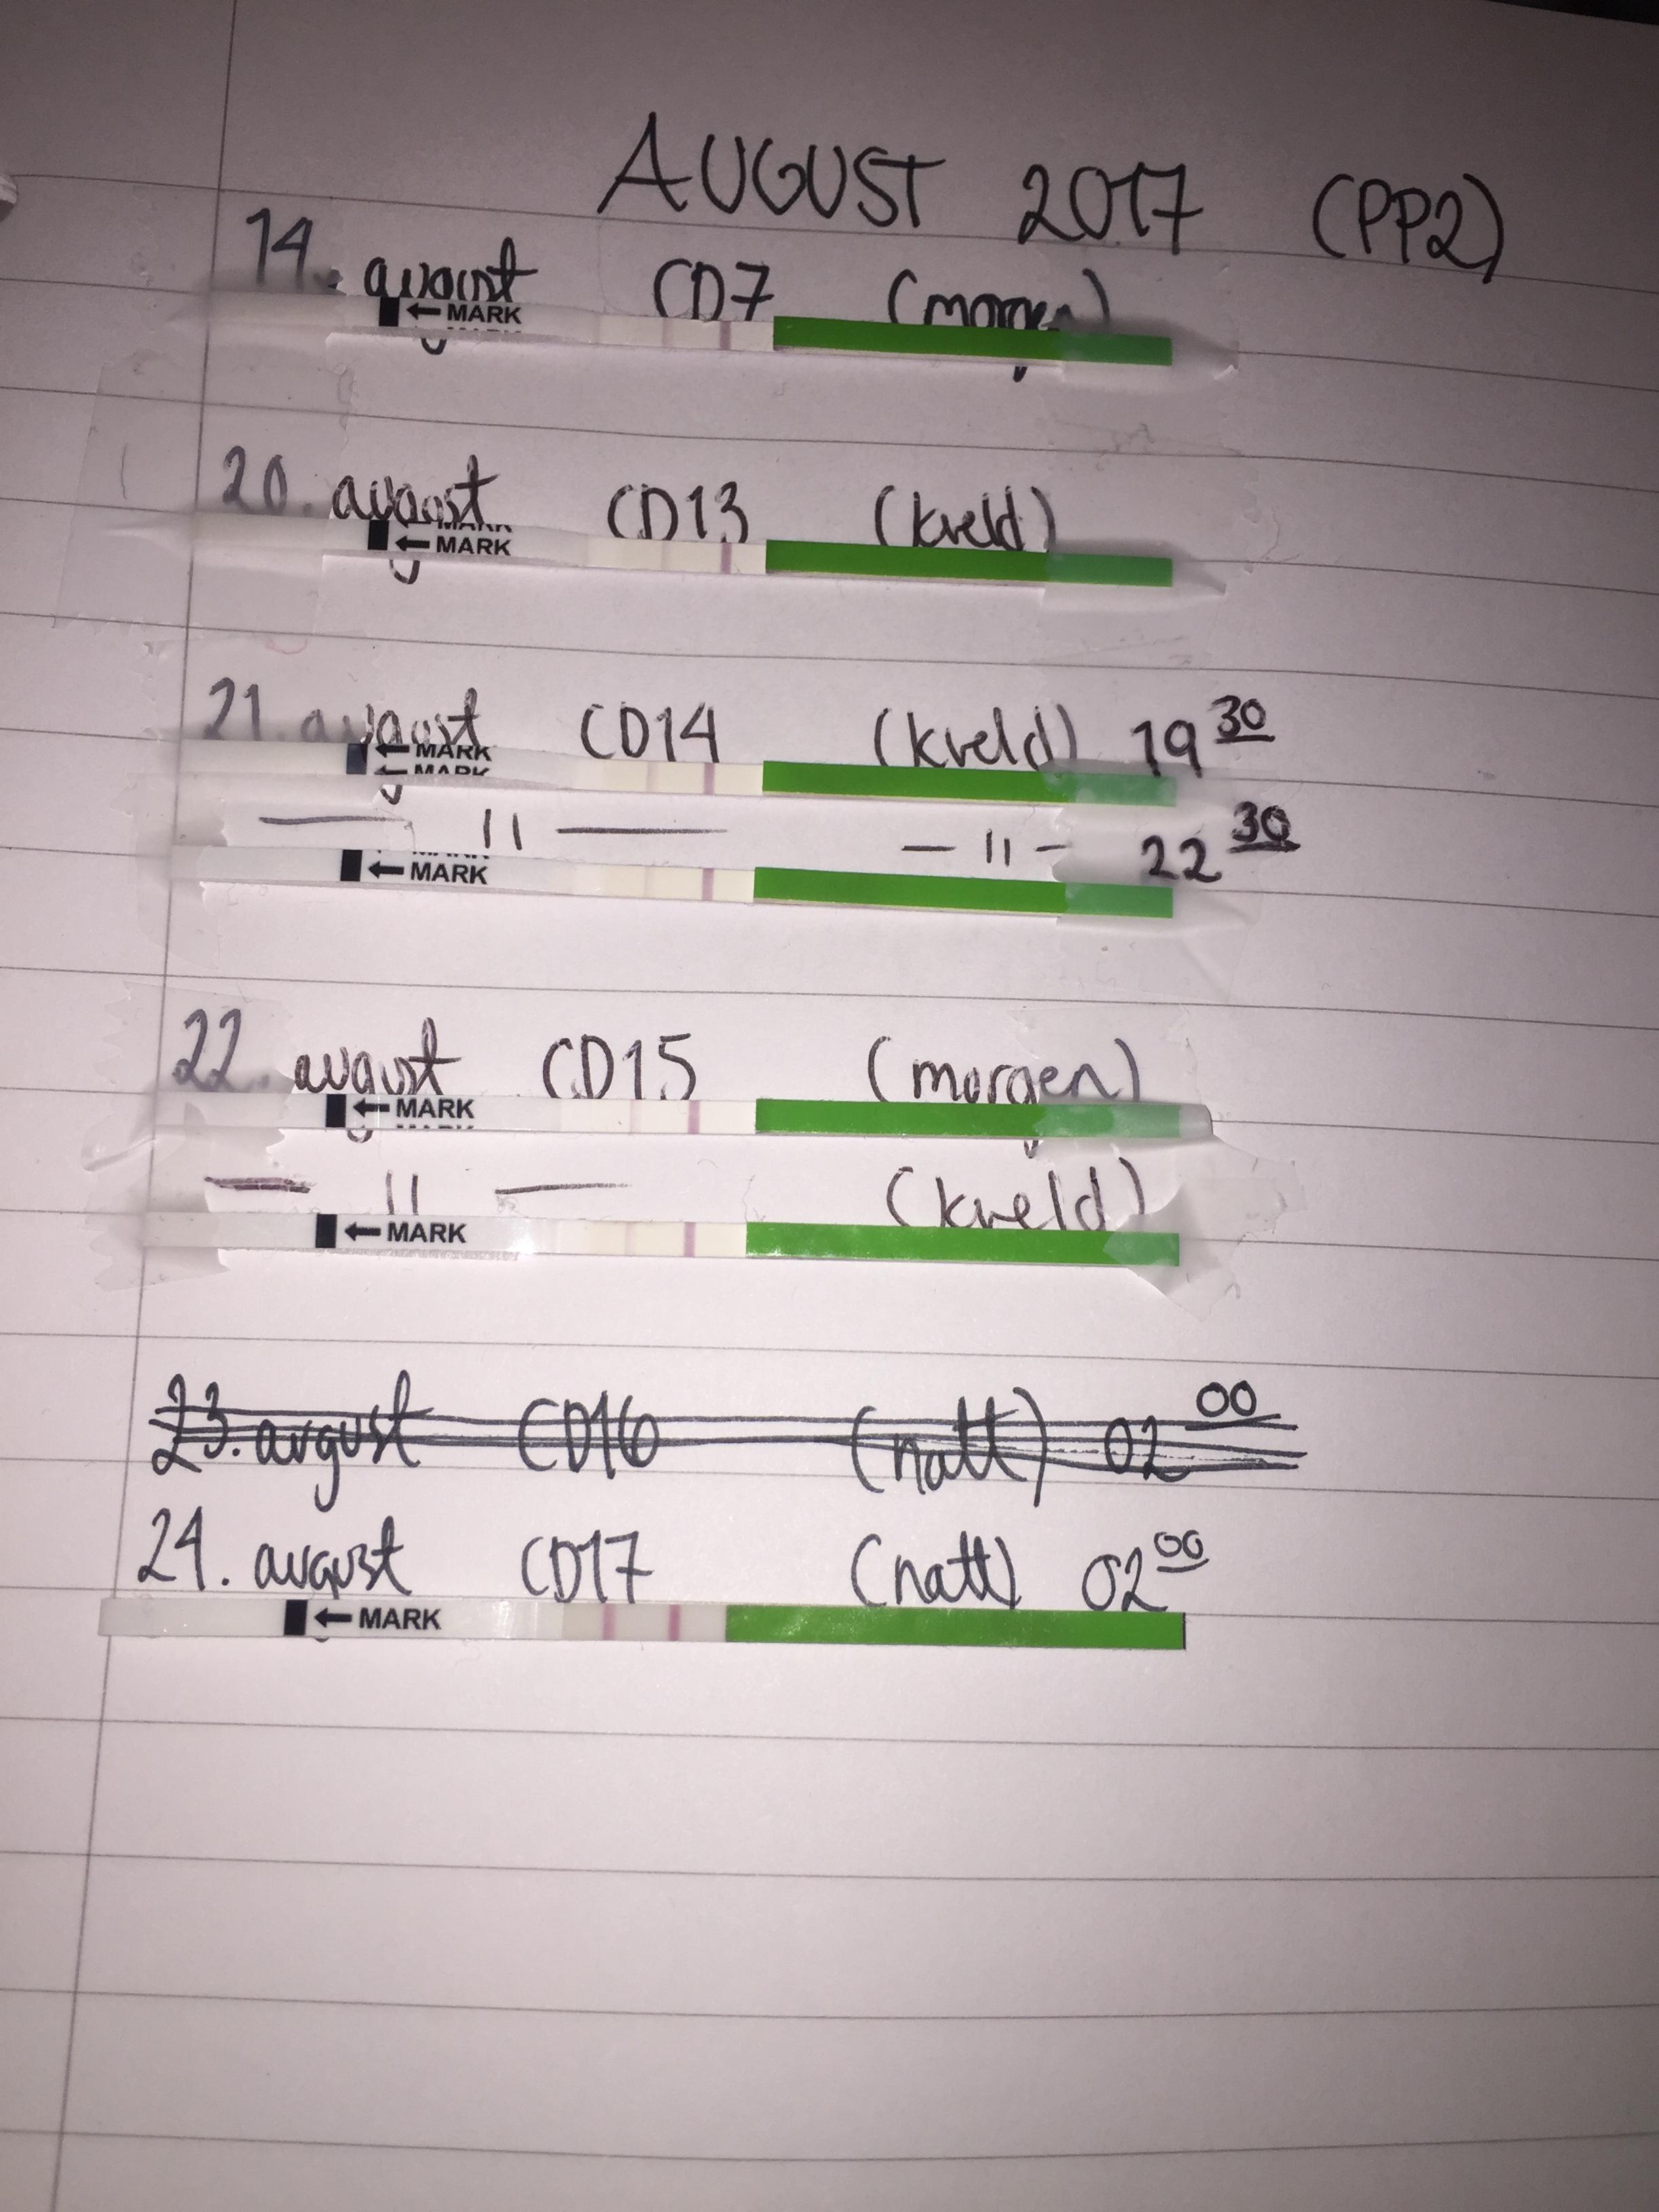 AUGUST 2017 (PP2)
14. august CD7 (morgen)
← MARK
20. august CD13 (kveld)
← MARK
21. august CD14 (kveld) 19 30
← MARK
← MARK
— 11 — — 11 — 22 30
← MARK
22. august CD15 (morgen)
← MARK
— 11 — (kveld)
← MARK
23. august CD16 (natt) 02 00
24. august CD17 (natt) 02 00
← MARK